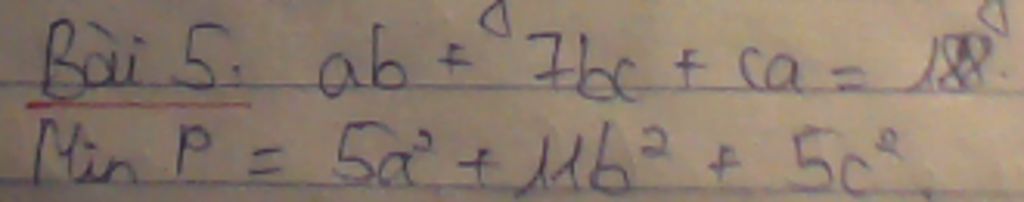 Bài 5: ab + 7bc + ca = 188.
Min P = 5a² + 11b² + 5c².